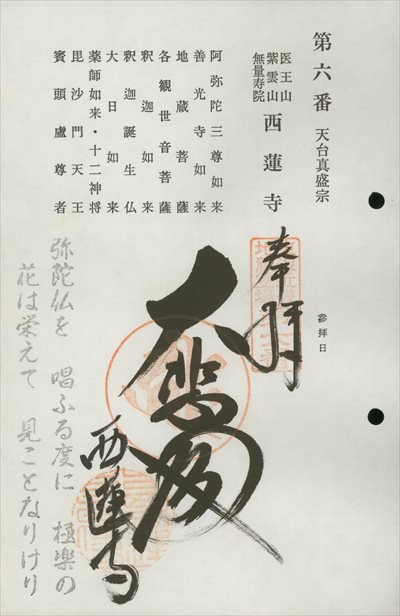 第六番 天台真盛宗
医王山
紫雲山
無量寿院
西蓮寺
阿弥陀三尊如来
善光寺如来
地蔵菩薩
各観世音菩薩
釈迦如来
釈迦誕生仏
大日如来
薬師如来・十二神将
毘沙門天王
賓頭盧尊者
参拝日
奉拝
大悲殿
西蓮寺
弥陀仏を 唱ふる度に 極楽の
花は栄えて 見ことなりけり